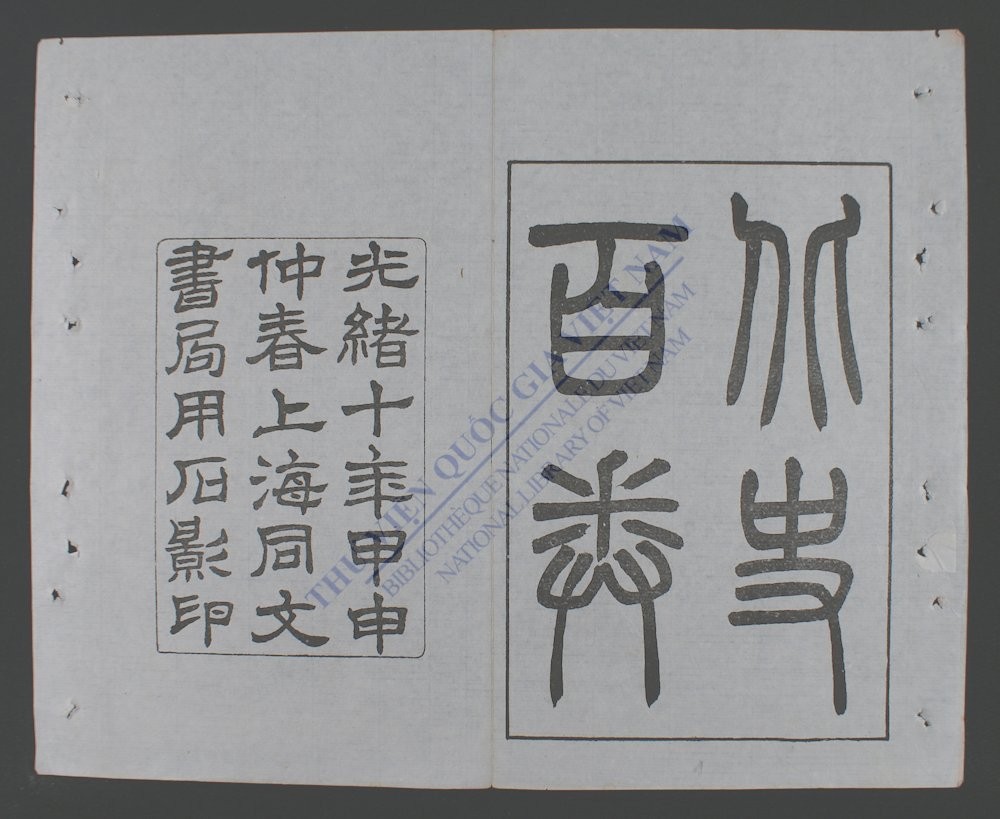 北史
百卷
光緒十年甲申
仲春上海同文
書局用石影印
THƯ VIỆN QUỐC GIA VIỆT NAM
BIBLIOTHÈQUE NATIONALE DU VIETNAM
NATIONAL LIBRARY OF VIETNAM